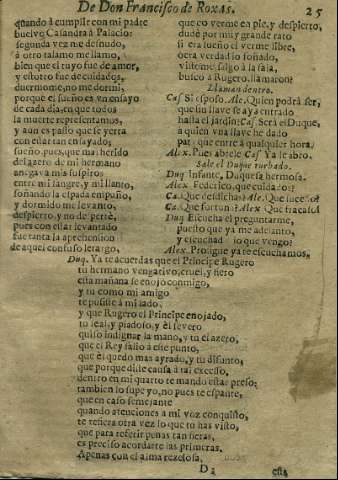 De Don Francisco de Roxas. 25
quando à cumplir con mi padre
buelvo Casandra à Palacio:
segunda vez me desnudo,
à otro talamo me llamo,
bien que el tuyo fue de amor,
y estotro fue de cuidados,
duermome, no me dormi,
porque el sueño es vn ensayo
de cada dia, en que todos
la muerte representamos,
y aun es passo que se yerra
con estar tan ensayado,
sueño pues, que mal herido
del azero de mi hermano
anegava mis suspiros
entre mi sangre, y mi llanto,
soñando la espada empuño,
y dormido me levanto,
despierto, y no desperté,
pues con estar levantado
fue tanta la aprehension
de aquel confuso letargo,
que co verme en pie, y despierto,
dudè por muy grande rato
si era sueño el verme libre,
o era verdad lo soñado,
visteme salgo à la sala,
busco à Rugero, llamaron
Llaman dentro.
Cas Si esposo, Ale. Quien podrà ser,
que sin llave se aya entrado
hasta el jardin? Cas Serà el Duque,
à quien vna llave he dado
para que entre à qualquier hora,
Alex. Pues abrele Cas Ya le abro.
Sale el Duque turbado.
Duq Infante, Duquesa hermosa.
Alex Federico, que cuidado?
Ca. Que desdicha? Ale. Que sucesso?
Ca. Que fortuna? Alex Que fracaso?
Duq Escucha el preguntarme,
puesto que ya me adelanto,
y escuchad lo que vengo?
Alex. Prosigue ya te escuchamos.
Duq. Ya te acuerdas que el Principe Rugero
tu hermano vengativo, cruel, y fiero
esta mañana se enojò conmigo,
y tu como mi amigo
te pusiste à mi lado,
y que Rugero el Principe enojado,
tu leal, y piadoso, y èl severo
quiso indignar la mano, y tu el azero,
que el Rey saliò à este punto,
que èl quedò mas ayrado, y tu difunto,
que porque diste causa à tal excesso,
dentro en mi quarto te mandò estar preso;
tambien lo supe yo, no pues te espante,
que en caso semejante
quando atenciones à mi voz conquisto,
te refiera otra vez lo que tu has visto,
que para referir penas tan fieras,
es preciso acordarte las primeras.
Apenas con el alma rezelosa,
D 2 esta